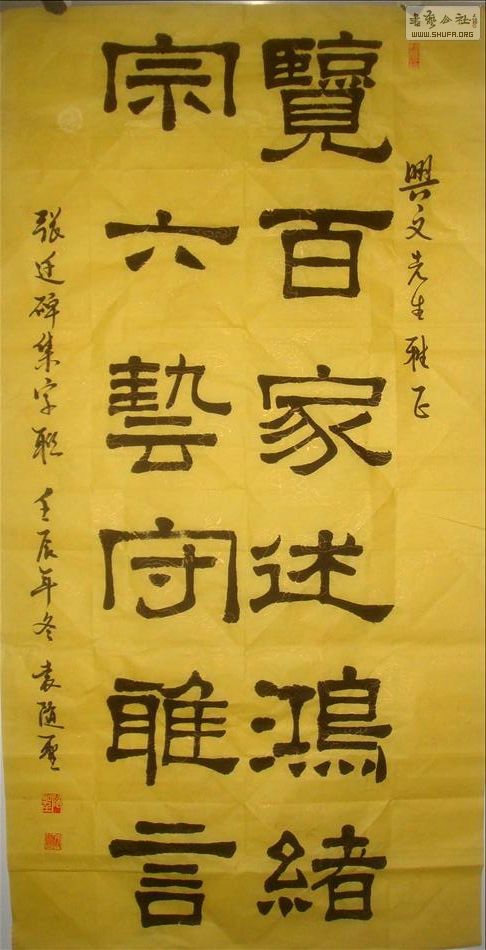 興文先生雅正
覽百家述鴻緒
宗六藝守雅言
張迁碑集字联 壬辰年冬 袁随
書藝公社
WWW.SHUFA.ORG